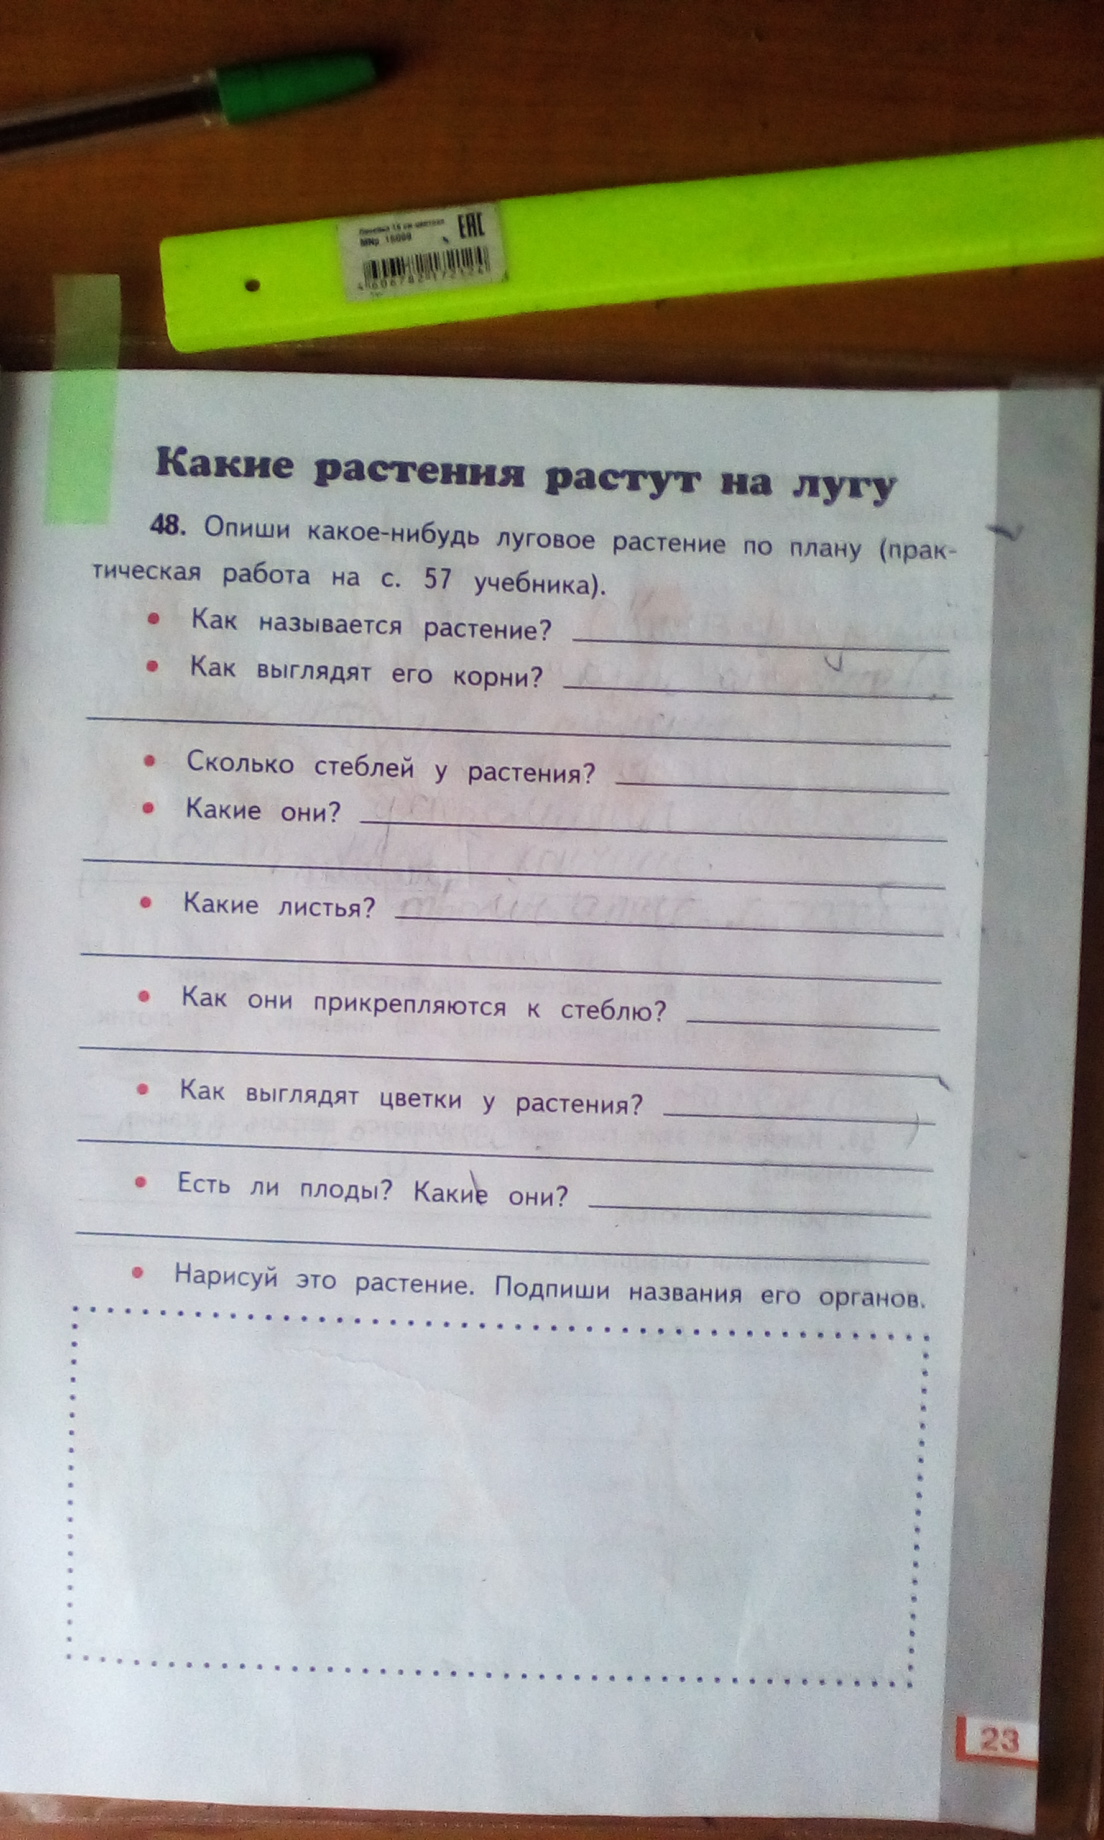 ЕАС
Какие растения растут на лугу
48. Опиши какое-нибудь луговое растение по плану (прак-
тическая работа на с. 57 учебника).
• Как называется растение?
• Как выглядят его корни?
• Сколько стеблей у растения?
• Какие они?
• Какие листья?
• Как они прикрепляются к стеблю?
• Как выглядят цветки у растения?
• Есть ли плоды? Какие они?
• Нарисуй это растение. Подпиши названия его органов.
23